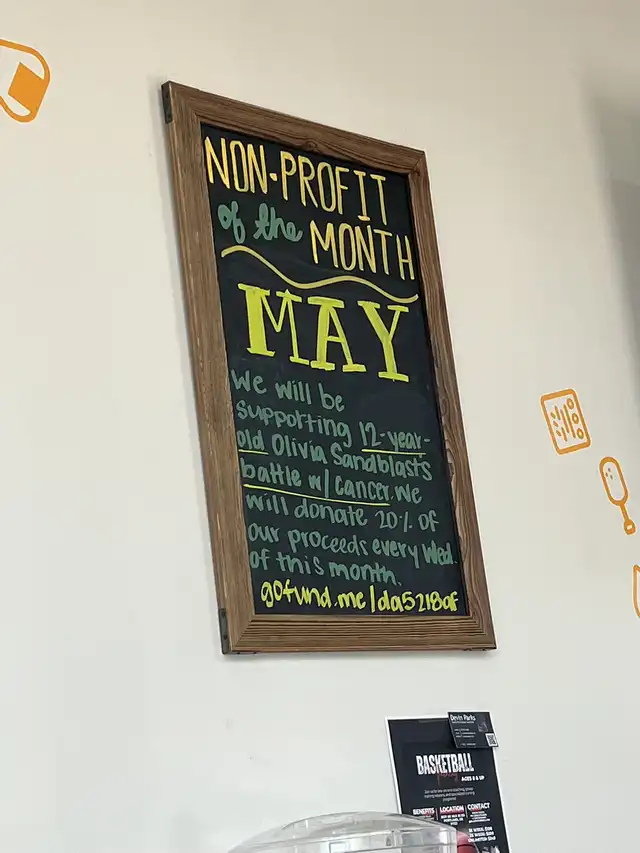 NON-PROFIT
of the MONTH
MAY
We will be
supporting 12-year-
old Olivia Sandblasts
battle w/ cancer. We
will donate 20% of
our proceeds every Wed.
of this month.
gofund.me/da5218af
Devin Parks
BASKETBALL
AGES 6 & UP
BENEFITS
LOCATION
CONTACT